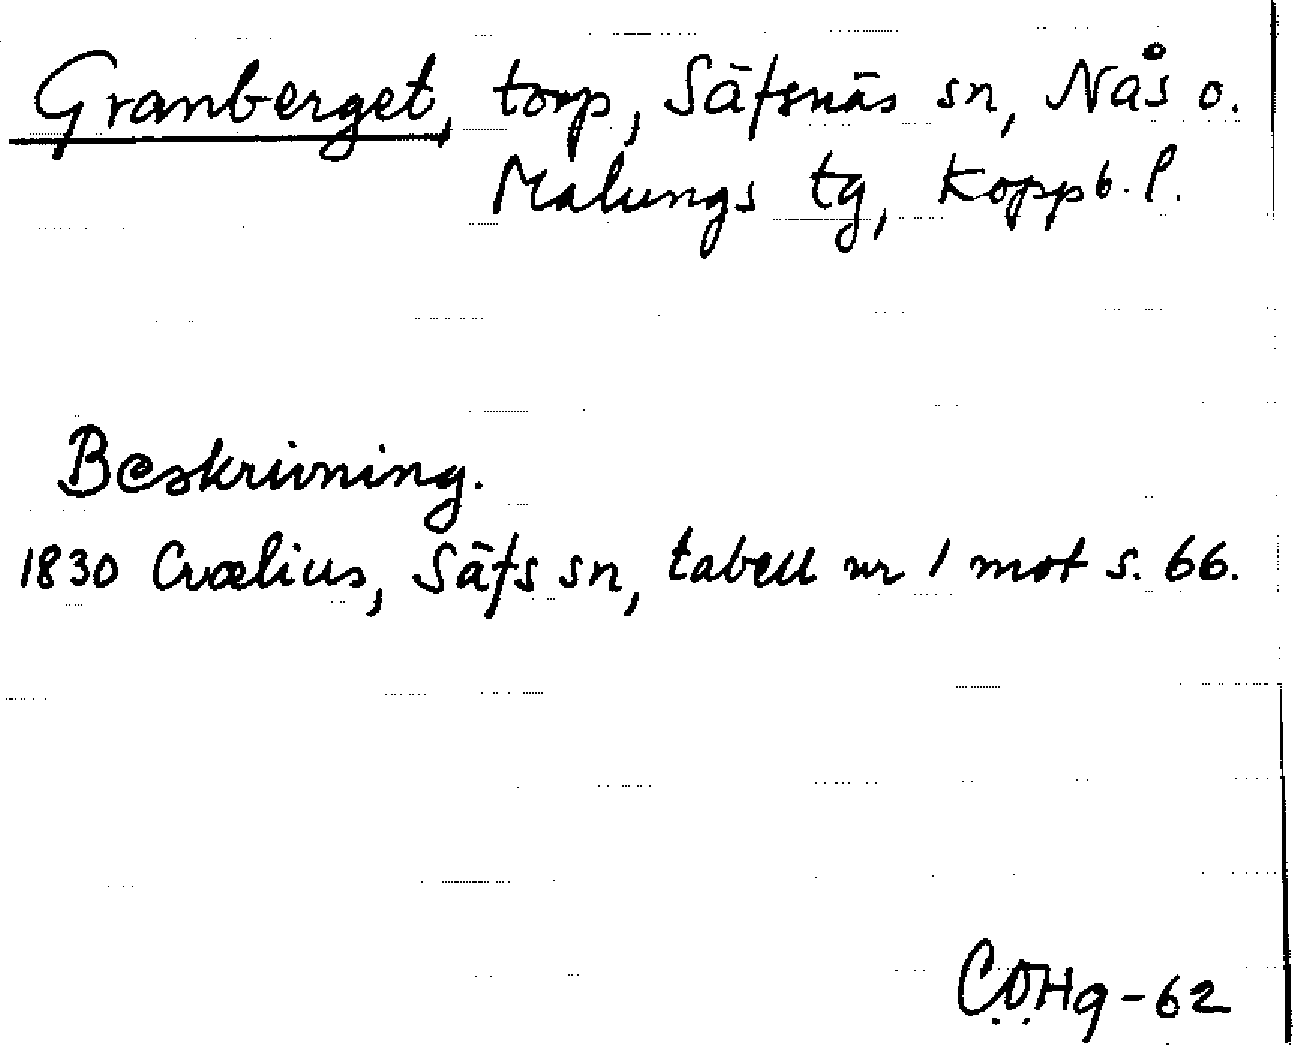 Granberget, torp, Säfsnäs sn, Nås o.
Malungs tg, Koppb. l.
Beskrivning.
1830 Crælius, Säfs sn, tabell nr 1 mot s. 66.
COHg-62